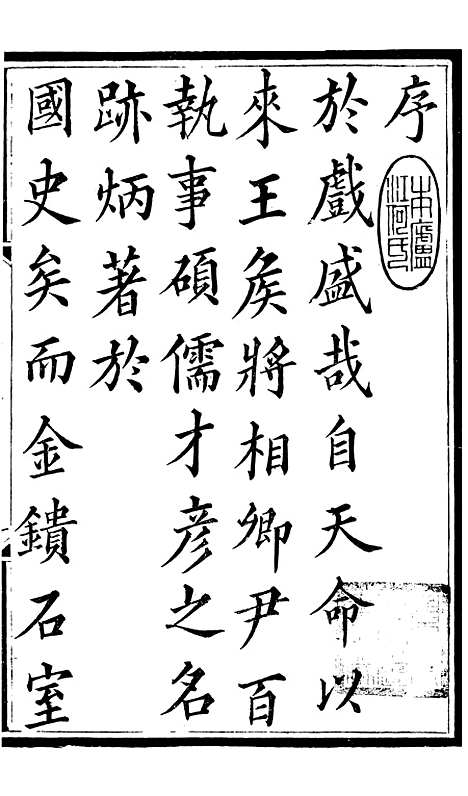 序
於戲盛哉自天命以
來王矦將相卿尹百
執事碩儒才彦之名
跡炳著於
國史矣而金鐀石室